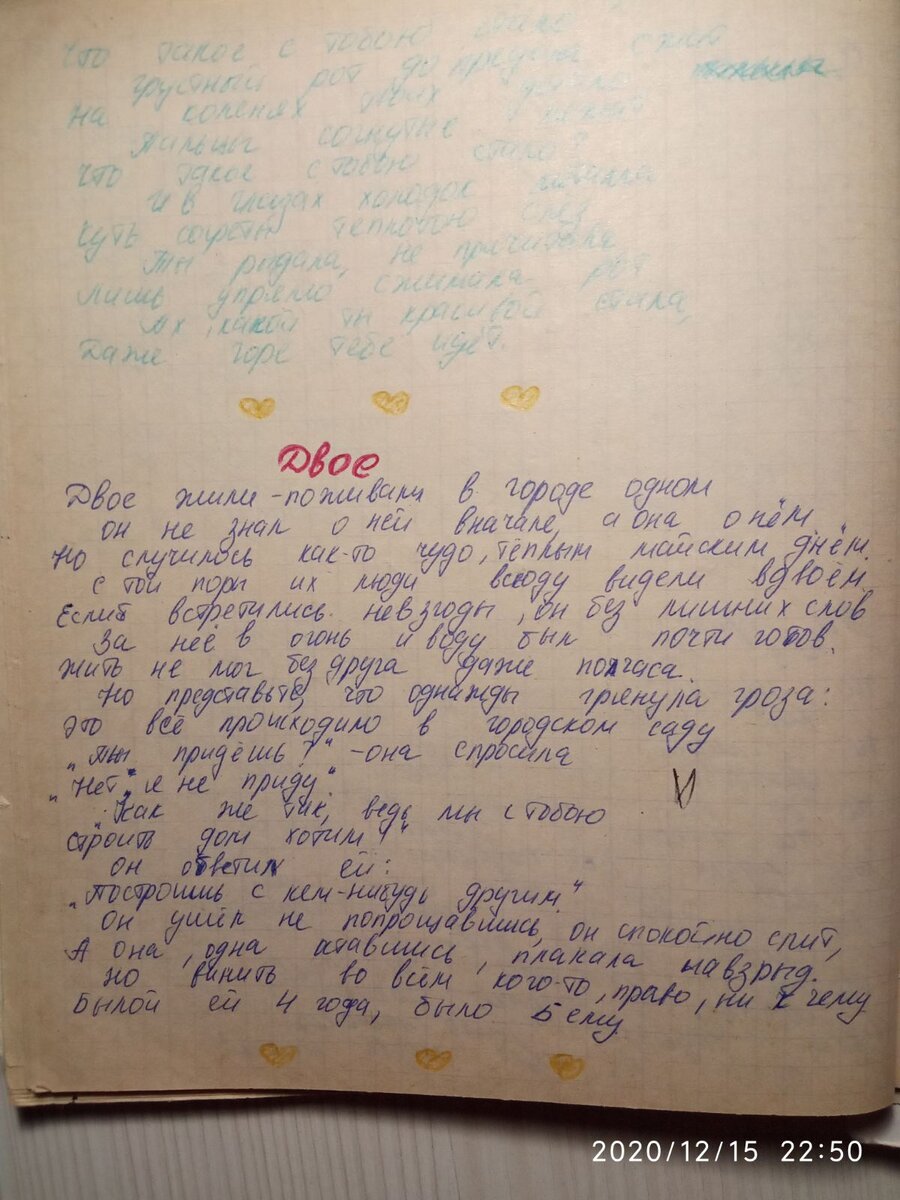 Что такое с тобою стало?
грустный рот до предела сжат
На коленях твоих устало
Пальцы согнутые лежат
Что такое с тобою стало?
И в глазах холодок
Чуть согреты теплотою слёз
Ты рыдала, не причитала
Лишь упрямо сжимала рот
Ах какой ты красивой стала,
Даже горе тебе идёт.
Двое
Двое жили-поживали в городе одном
он не знал о ней вначале, а она о нём
Но случилось как-то чудо, тёплым майским днём.
с той поры их люди всюду видели вдвоём
Еслиб встретились невзгоды, он без лишних слов
За неё в огонь и воду был почти готов.
Жить не мог без друга даже полчаса.
Но представьте, что однажды грянула гроза:
Это всё происходило в городском саду
„Ты придёшь?" - она спросила
„Нет" я не приду"
„Как же так, ведь мы с тобою
строить дом хотим!"
он ответил ей:
„Построишь с кем-нибудь другим"
Он ушёл не попрощавшись, он спокойно спит,
А она, одна оставшись, плакала навзрыд.
Но винить во всём кого-то, право, ни к чему
Былой ей 4 года, было 5 ему
2020/12/15 22:50